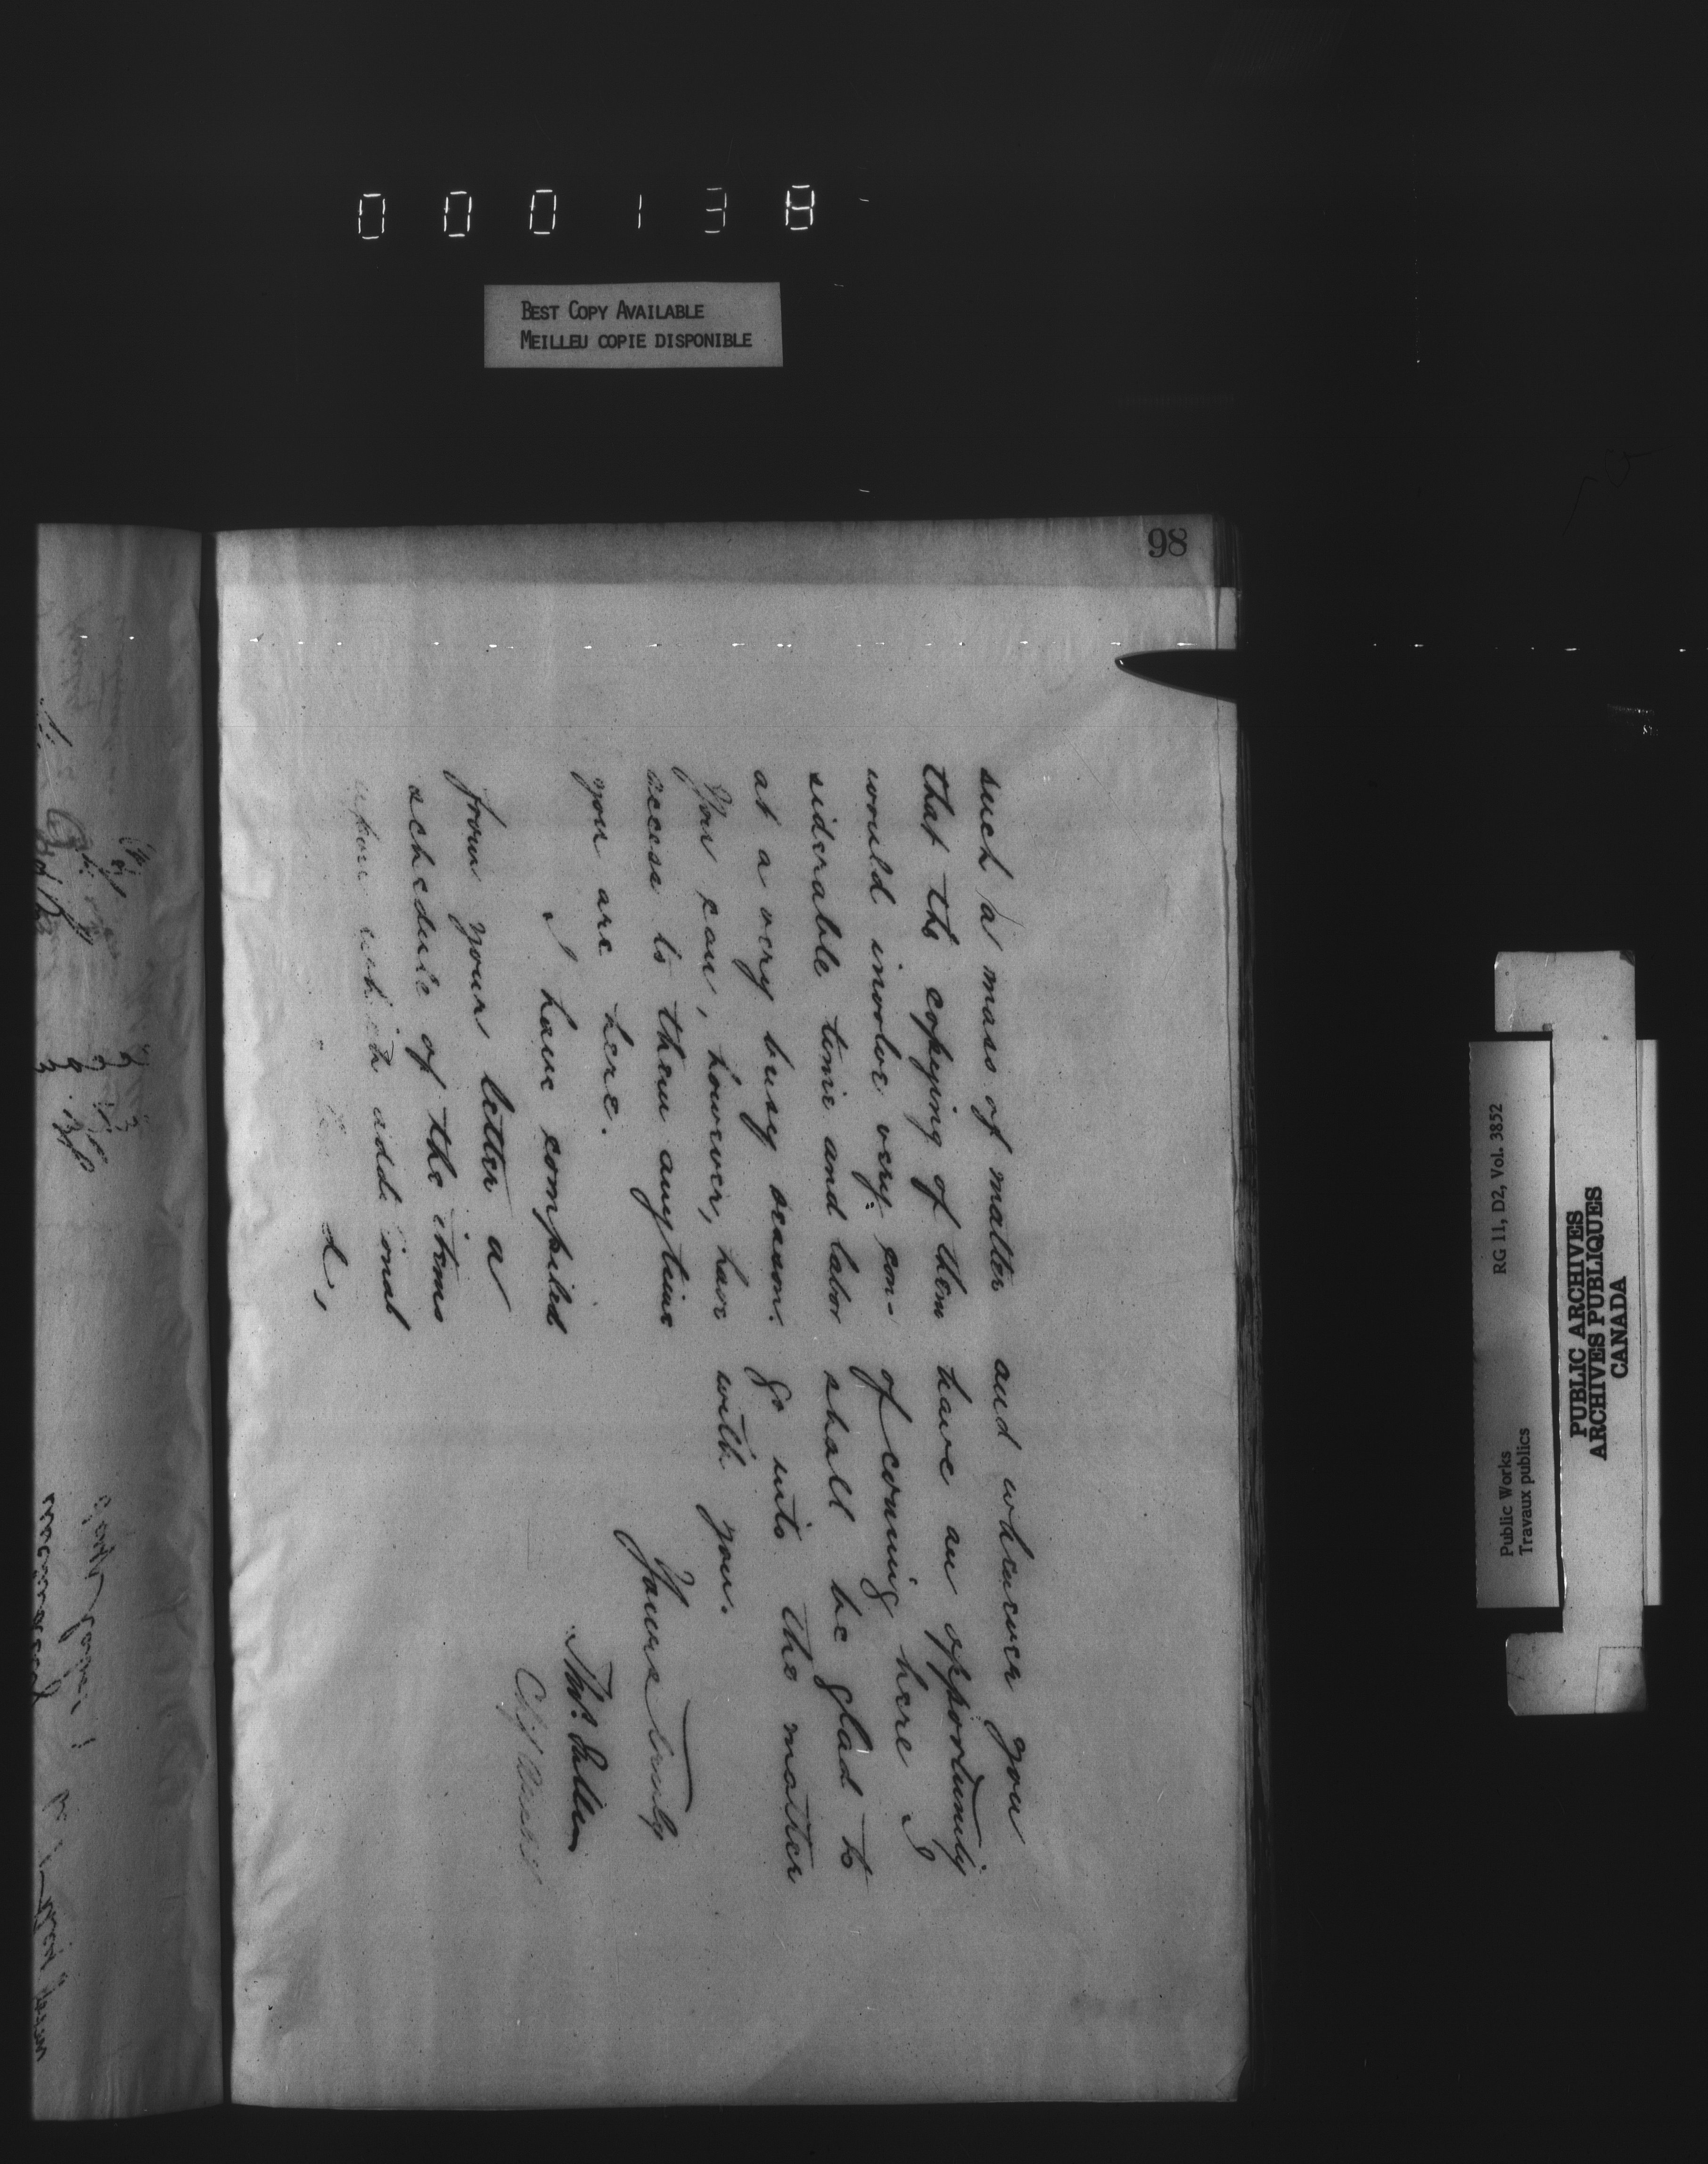 000138
BEST COPY AVAILABLE
MEILLEU COPIE DISPONIBLE
98
such a mass of matter
that the copying of them
would involve very con-
siderable time and labor
at a very busy season.
You can, however, have
access to them anytime
you are here.
I have compiled
from your letter a
schedule of the items
upon which additional
and whenever you
have an opportunity
of coming here I
shall be glad to
go into the matter
with you.
Yours truly
Thos. Fuller
Chf Archt
RG 11, D2, Vol. 3852
Public Works
Travaux publics
PUBLIC ARCHIVES
ARCHIVES PUBLIQUES
CANADA